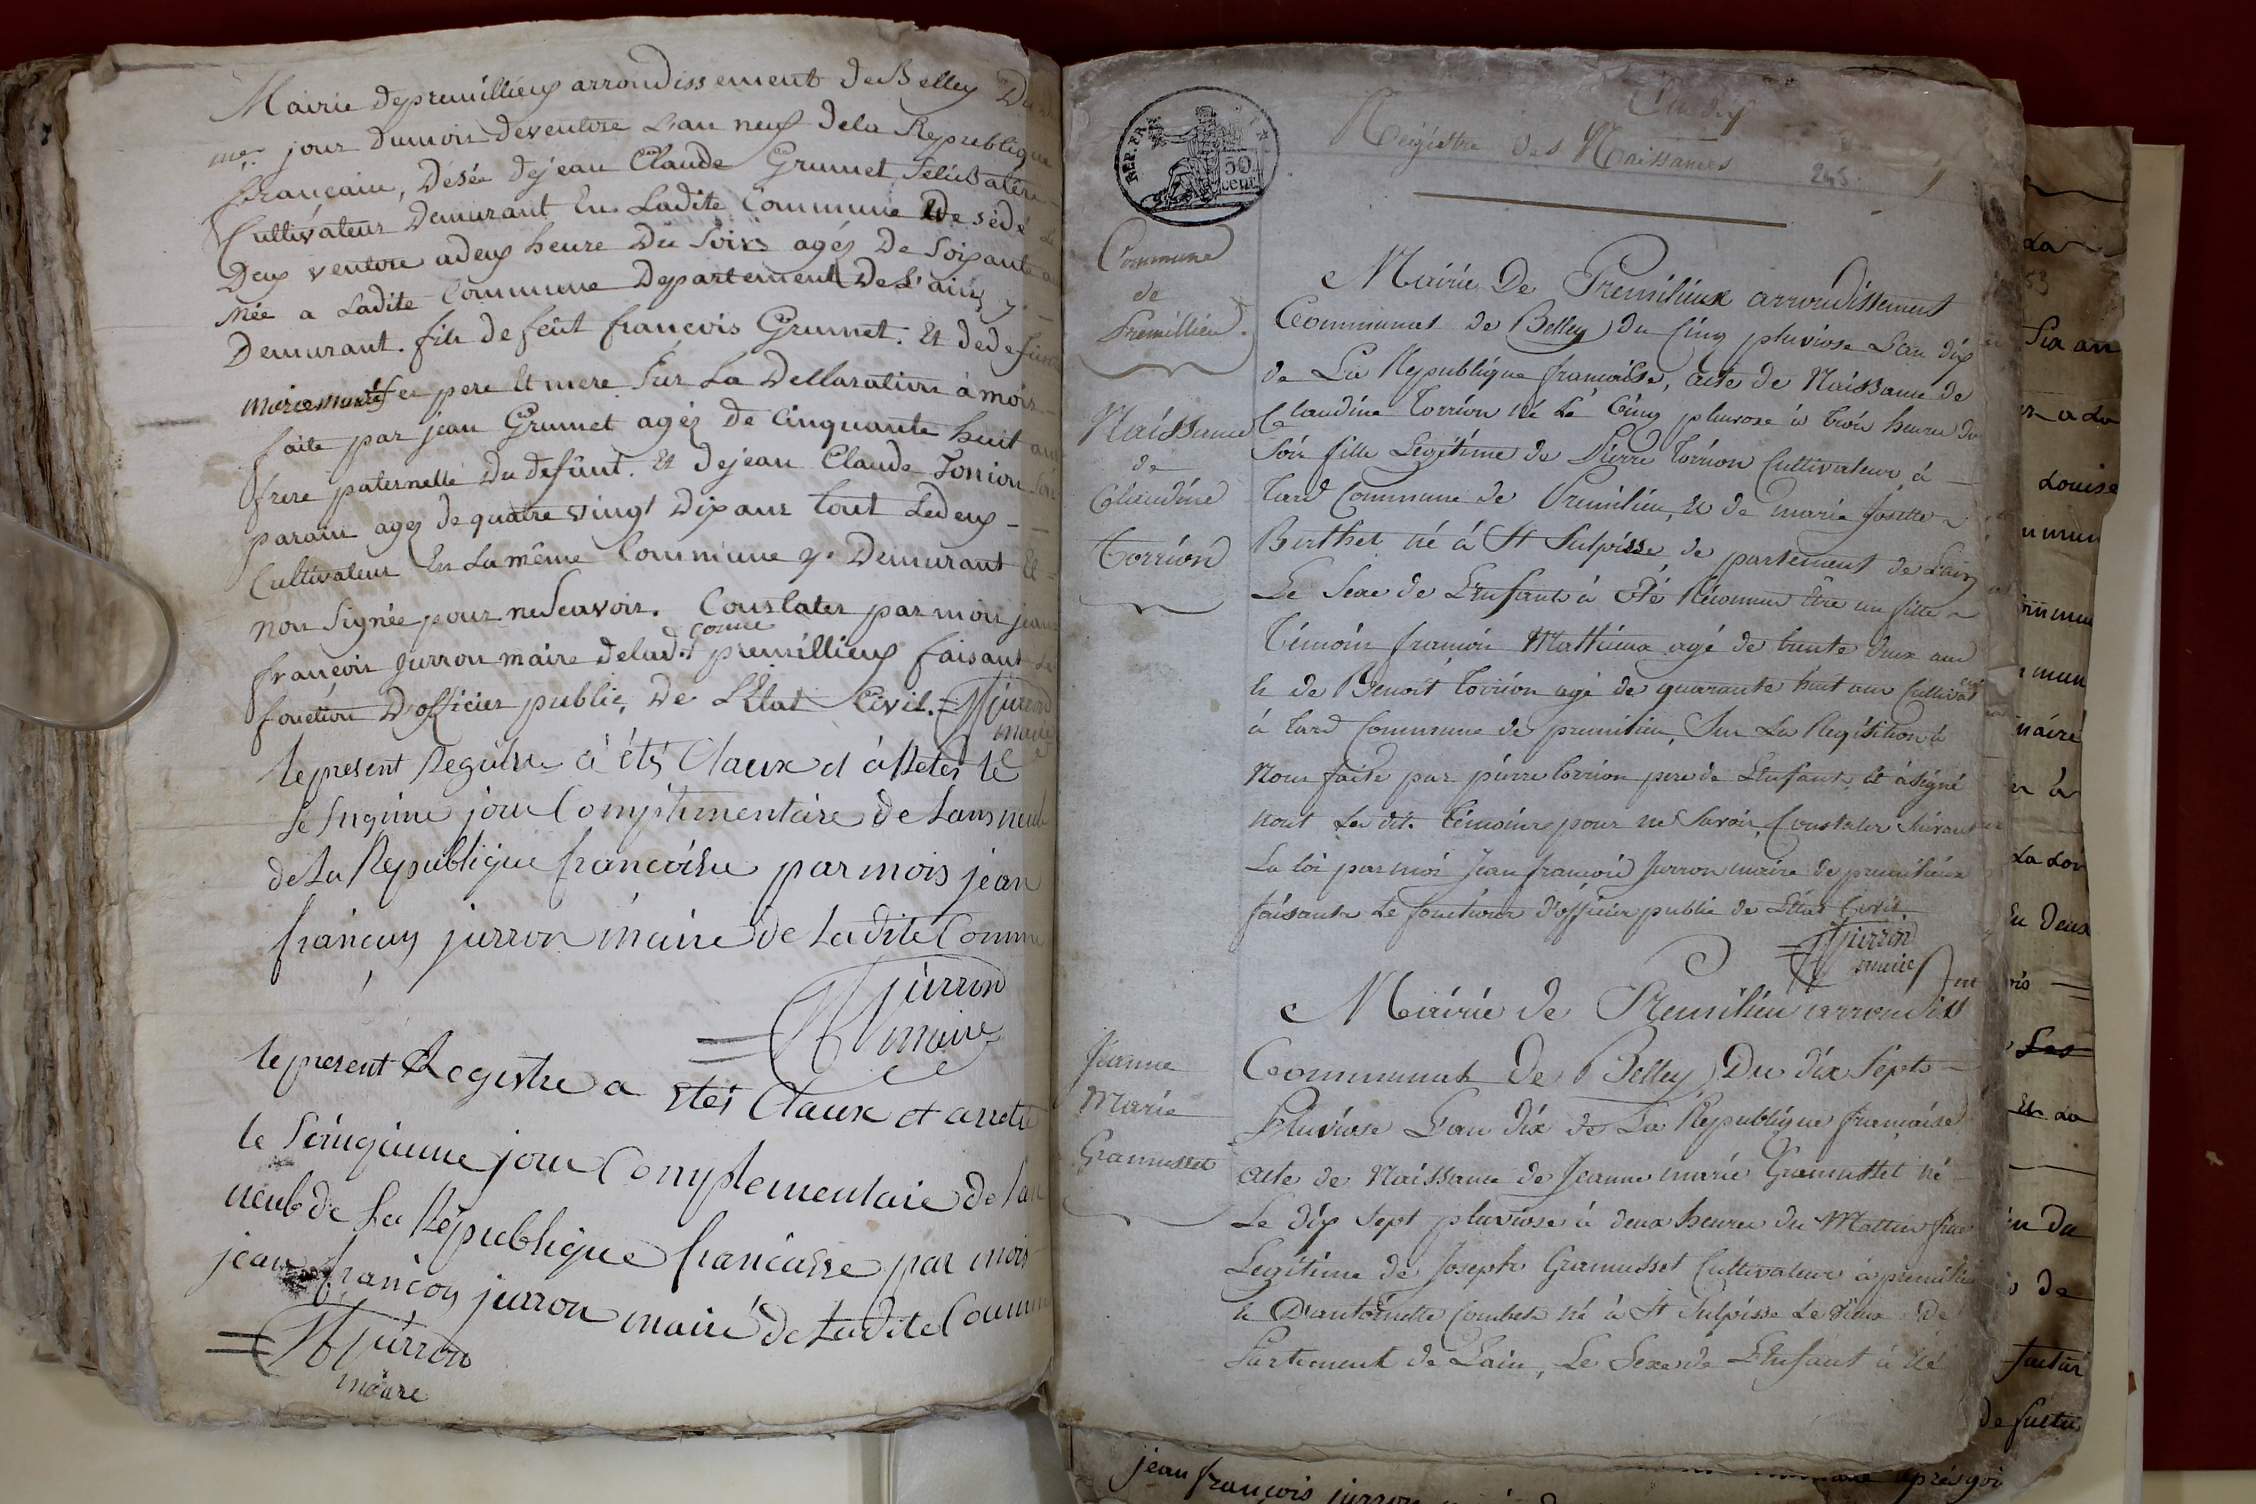 Mairie de premillieux arrondissement de Belley Du
me. jour du mois de ventose L'an neuf de la Republique
francaise, Désée de jean Claude Grumet Célibatere
Cultivateur Demurant En Ladite Commune De sédé Le
Deux ventose a deux heure Du Soir agés De Soixante
Née a Ladite Commune Departement De L'ain y.
Demurant. fils de feüt françois Grumet. Et de defunt
marie fer pere Et mere Sur La Dellaration à mois
faite par jean Grumet agés de Cinquante huit ans
frere paternelle Du defünt. Et de jean Claude Torrion Son
parain agés de quatre vingt Dix ans tout Ledeux
Cultivateur En La même Commune y. Demurant Et
non Signée pour ne Scavoir. Constater par mois jean
françois jurron maire de lad. comue premillieux faisant La
fonction D'officier public De L'Etat Civil. = jurron
maire
le present Registre à étés Claux et àRetés le
Se Inquime jour Complimentaire de Lans neub
de La Republique francoise par mois jean
françuy jurron maire de Ladite Comm
= jurron
maire
le present Registre a etés Claux et arretes
le Cinquieme jour Complementaire de lan
neub de La Republique francaise par mois
jean françoy jurron maire de Ladite Comm
= jurron
maire
REP. FRA.
50
cent.
Regístre des Naissances
245
Commune
de
Premillieu.
Naissance
de
Claudine
Torrion
Mairie De Premilieux arrondissement
Communal de Belley du Cinq pluviose L'an dix
de La Republique françaìse, acte de Naissance de
Claudine Torrion né Le Cinq pluviose à trois heures du
Soir fille Legitime de Pierre Torrion Cultivateur à
Tard Commune de Premilieu, Et de marie josette
Berthet né à St Sulpisse, de partement de Lain
Le Sexe de L'Enfant à été Réconnu Être un fille
Témoin françois Mathieux agé de trente deux ans
Et de Benoit Torrion agé de quarante huit ans Cultivat
à Tard Commune de premilieu, Sur La Reqisition à
Nous faite par pierre torrion pere de L'Enfant, Et à signé
nont Le dit. Témoins pour ne Savoir, Constater Suivant
La loi par moi Jean françois Jurron maire de premilieux
faisant Le fonctions d'officier public de L'Etat Civil
= jurron
maire
Jeanne
Marie
Gramusset
Mairie de Premilieu arrondiss
Communal De Belley, Du dix Sept
Pluviose L'an dix de La Republique française
acte de Naissance de Jeanne marie Gramusset né
Le dix Sept pluviose à deux heures du Mattin fille
Legitime de Joseph Gramusset Cultivateur à premilieu
Et D'antoinette Combet né à St Sulpisse Le Vieux De
Partement de L'ain, Le Sexe de L'Enfant à été
La
53
Six an
er a La
Louise
mmun
maire
La Loi
Eu Deux
Les
Et La
Eu Du
de
factur
jean françois jurron